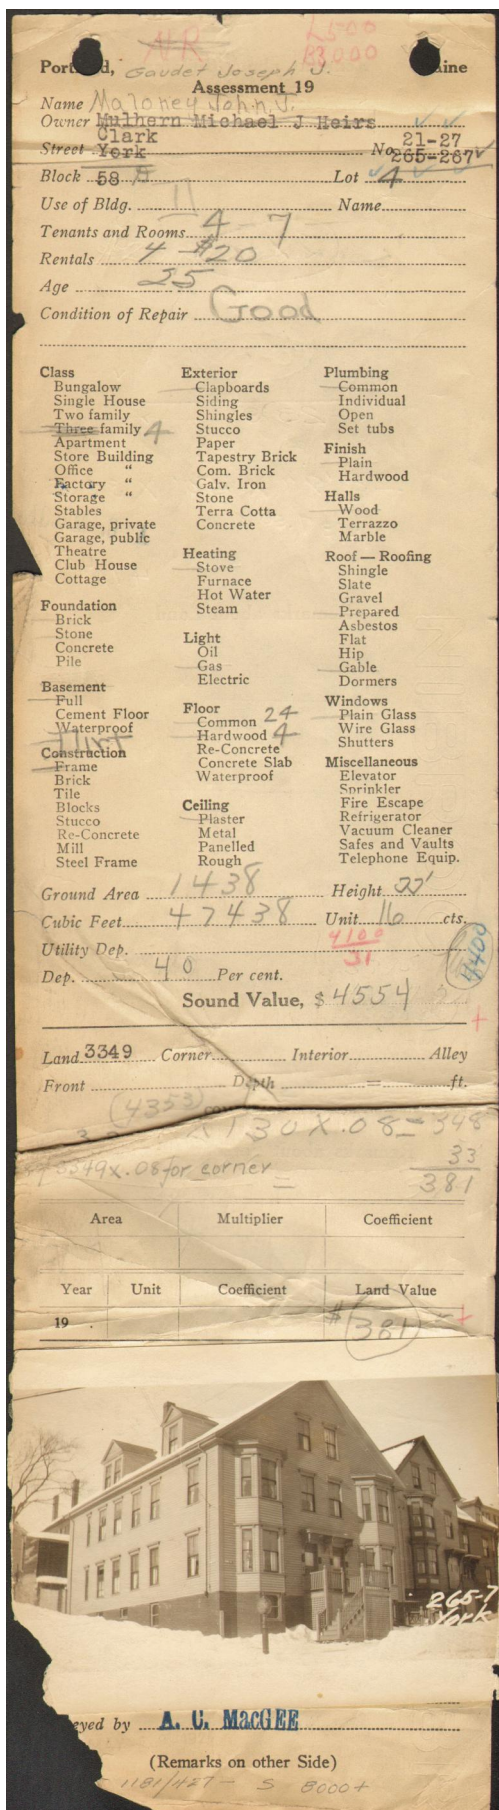 NR L 500
B3000
Portland, Maine
Gaudet Joseph J.
Assessment 19
Name Maloney John J.
Owner Mulhern Michael J Heirs
Clark 21-27
Street York No 265-267
Block 58 Lot 4
Use of Bldg. 11 Name
Tenants and Rooms 4 - 7
Rentals 4 $20
Age 25
Condition of Repair Good
Class
Bungalow
Single House
Two family
Three family 4
Apartment
Store Building
Office "
Factory "
Storage "
Stables
Garage, private
Garage, public
Theatre
Club House
Cottage
Foundation
Brick
Stone
Concrete
Pile
Basement
Full
Cement Floor
Waterproof
Dirt
Construction
Frame
Brick
Tile
Blocks
Stucco
Re-Concrete
Mill
Steel Frame
Exterior
Clapboards
Siding
Shingles
Stucco
Paper
Tapestry Brick
Com. Brick
Galv. Iron
Stone
Terra Cotta
Concrete
Heating
Stove
Furnace
Hot Water
Steam
Light
Oil
Gas
Electric
Floor
Common 24
Hardwood 4
Re-Concrete
Concrete Slab
Waterproof
Ceiling
Plaster
Metal
Panelled
Rough
Plumbing
Common
Individual
Open
Set tubs
Finish
Plain
Hardwood
Halls
Wood
Terrazzo
Marble
Roof — Roofing
Shingle
Slate
Gravel
Prepared
Asbestos
Flat
Hip
Gable
Dormers
Windows
Plain Glass
Wire Glass
Shutters
Miscellaneous
Elevator
Sprinkler
Fire Escape
Refrigerator
Vacuum Cleaner
Safes and Vaults
Telephone Equip.
Ground Area 1438 Height 33'
Cubic Feet 47438 Unit 16 cts.
Utility Dep. 4100
31
4400
Dep. 40 Per cent.
Sound Value, $ 4554
Land 3349 Corner Interior Alley
Front Depth = ft.
4353
X 130 X .08 = 348
3349 x .08 for corner = 33
381
Area Multiplier Coefficient
Year Unit Coefficient Land Value
19 $ 381
265-7
York
eyed by A. C. MacGEE
(Remarks on other Side)
1181/427 - S 8000+